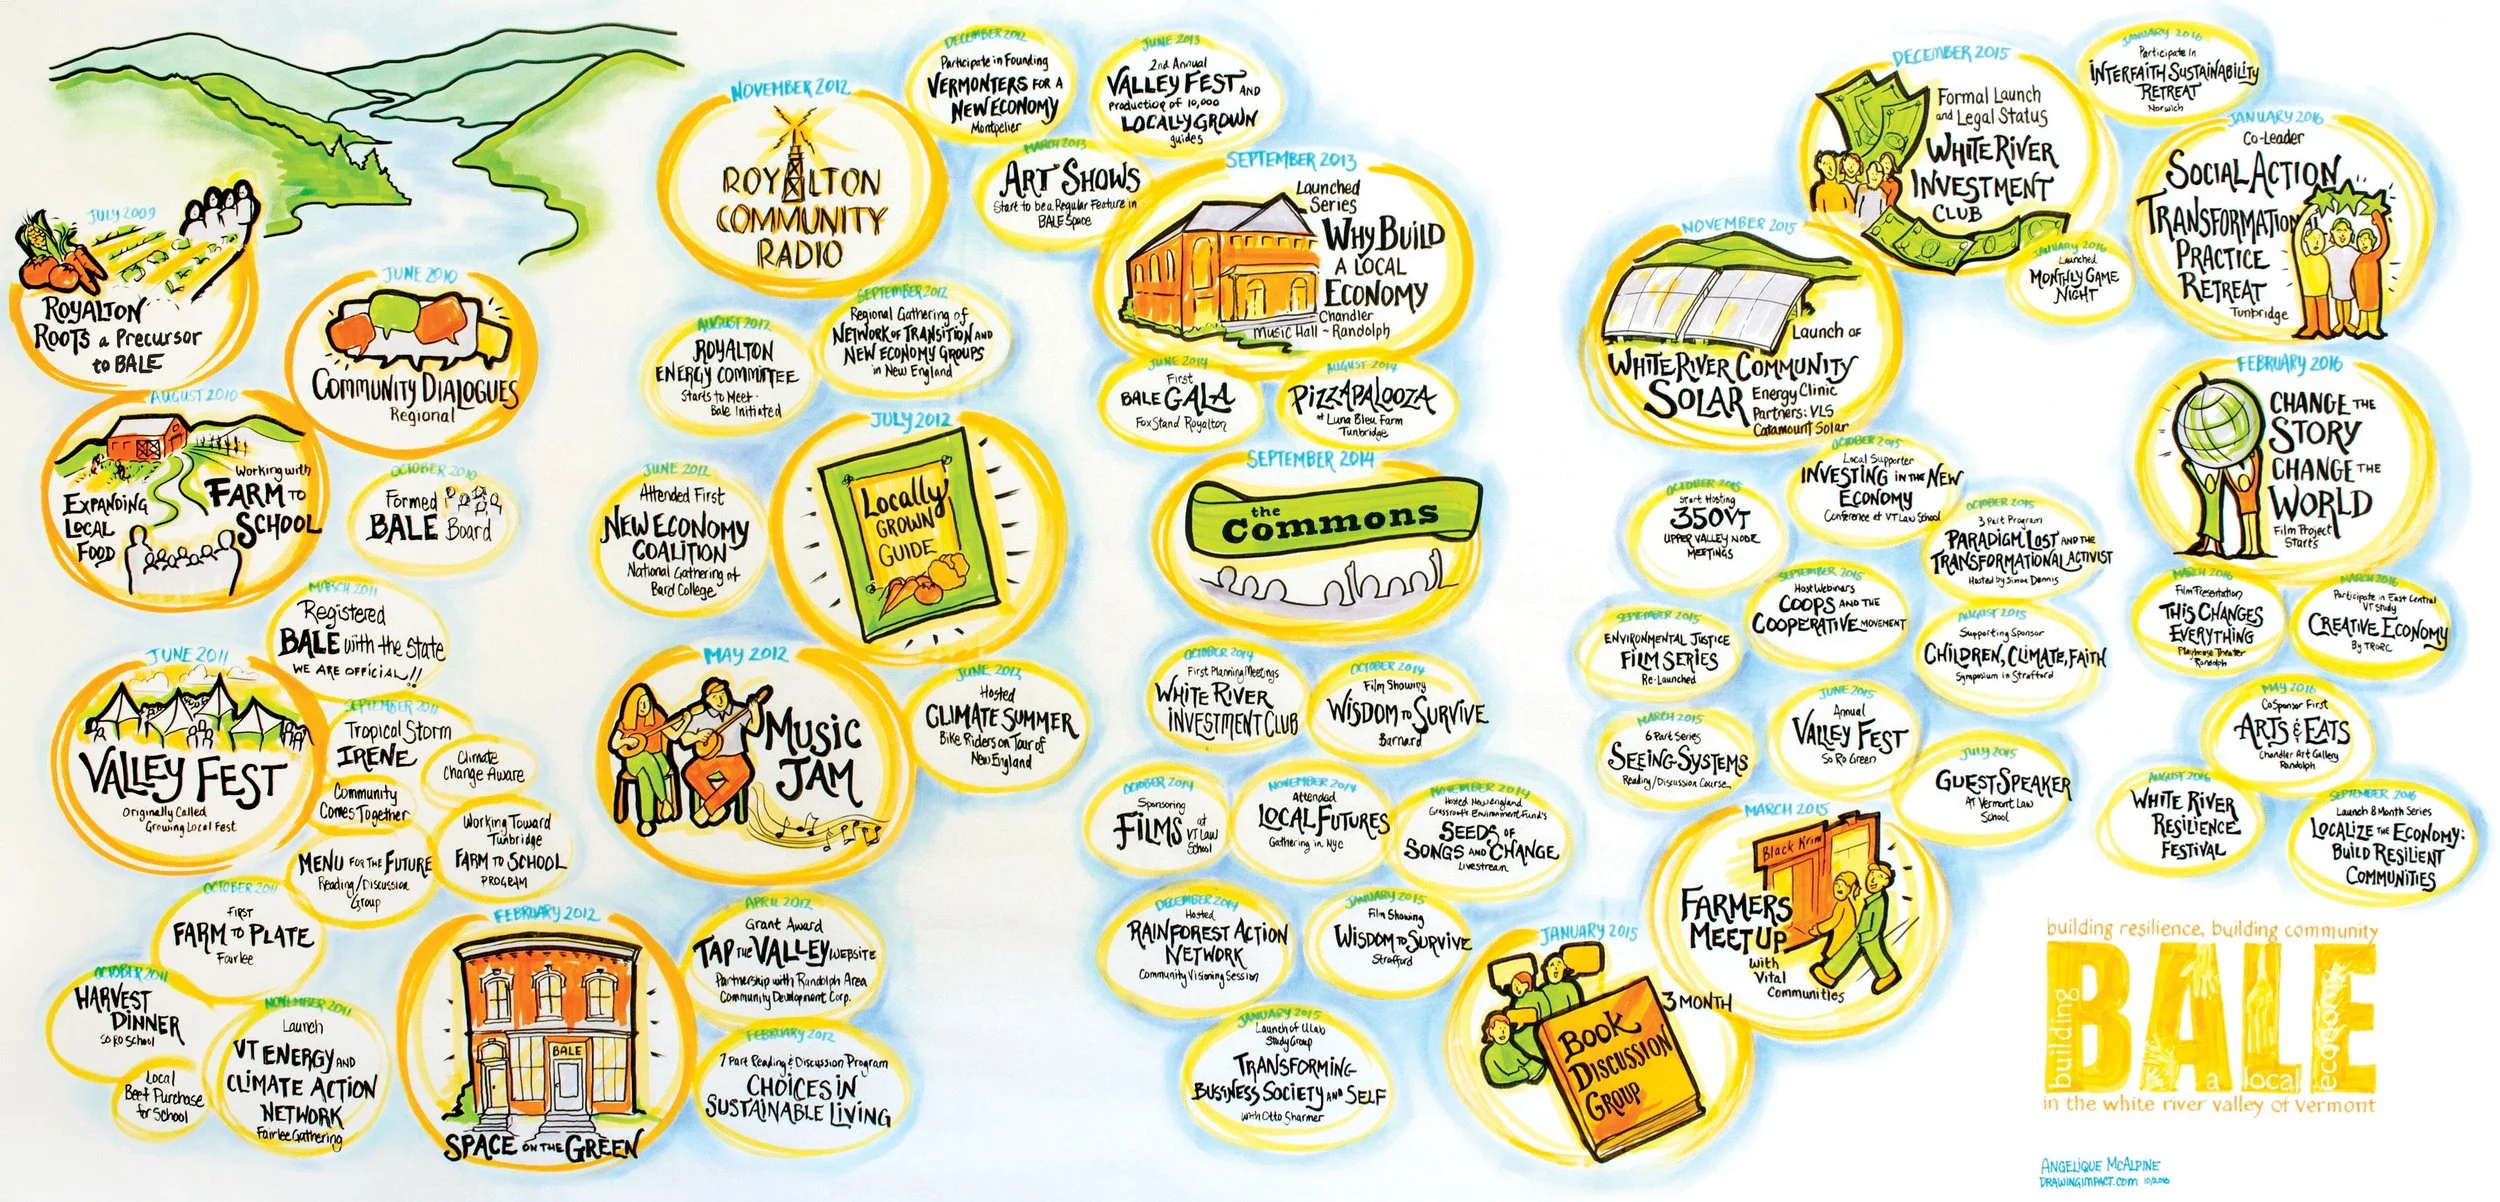 JULY 2009
ROYALTON
ROOTS a Precursor
to BALE
JUNE 2010
COMMUNITY DIALOGUES
Regional
AUGUST 2010
Working with
EXPANDING
LOCAL
FOOD
FARM TO
SCHOOL
OCTOBER 2010
Formed
BALE Board
MARCH 2011
Registered
BALE with the State
WE ARE OFFICIAL!!
JUNE 2011
VALLEY FEST
Originally Called
Growing Local Fest
SEPTEMBER 2011
Tropical Storm
IRENE
Climate
Change Aware
Community
Comes Together
Working Toward
Tunbridge
FARM TO SCHOOL
PROGRAM
MENU FOR THE FUTURE
Reading/Discussion
Group
OCTOBER 2011
FIRST
FARM TO PLATE
Fairlee
OCTOBER 2011
HARVEST
DINNER
SO RO SCHOOL
Local
Beef Purchase
for School
NOVEMBER 2011
Launch
VT ENERGY AND
CLIMATE ACTION
NETWORK
Fairlee Gathering
FEBRUARY 2012
BALE
SPACE ON THE GREEN
FEBRUARY 2012
7 Part Reading & Discussion Program
CHOICES IN
SUSTAINABLE LIVING
APRIL 2012
Grant Award
TAP THE VALLEY WEBSITE
Partnership with Randolph Area
Community Development Corp.
MAY 2012
MUSIC
JAM
JUNE 2012
Hosted
CLIMATE SUMMER
Bike Riders on Tour of
New England
JUNE 2012
Attended First
NEW ECONOMY
COALITION
National Gathering at
Bard College
JULY 2012
Locally
GROWN
GUIDE
AUGUST 2012
ROYALTON
ENERGY COMMITTEE
Starts to Meet -
Bale Initiated
SEPTEMBER 2012
Regional Gathering of
NETWORK OF TRANSITION AND
NEW ECONOMY GROUPS
in New England
NOVEMBER 2012
ROYALTON
COMMUNITY
RADIO
DECEMBER 2012
Participate in Founding
VERMONTERS FOR A
NEW ECONOMY
Montpelier
MARCH 2013
ART SHOWS
Start to be a Regular Feature in
BALE Space
JUNE 2013
2nd Annual
VALLEY FEST AND
Production of 10,000
LOCALLY GROWN
guides
SEPTEMBER 2013
Launched
Series
WHY BUILD
A LOCAL
ECONOMY
Chandler
Music Hall ~ Randolph
JUNE 2014
First
BALE GALA
Fox Stand Royalton
AUGUST 2014
PIZZAPALOOZA
at Luna Bleu Farm
Tunbridge
SEPTEMBER 2014
the
Commons
OCTOBER 2014
First Planning Meetings
WHITE RIVER
INVESTMENT CLUB
OCTOBER 2014
Film Showing
WISDOM TO SURVIVE
Barnard
OCTOBER 2014
Sponsoring
FILMS at
VT Law
School
NOVEMBER 2014
Attended
LOCAL FUTURES
Gathering in NYC
NOVEMBER 2014
Hosted New england
Grassroots Environment Fund's
SEEDS OF
SONGS AND CHANGE
Livestream
DECEMBER 2014
Hosted
RAINFOREST ACTION
NETWORK
Community Visioning Session
JANUARY 2015
Film Showing
WISDOM TO SURVIVE
Strafford
JANUARY 2015
Launch of ULab
Study Group
TRANSFORMING
BUSINESS SOCIETY AND SELF
with Otto Sharmer
JANUARY 2015
3 MONTH
BOOK
DISCUSSION
GROUP
MARCH 2015
Black Krim
FARMERS
MEET UP
with
Vital
Communities
MARCH 2015
6 Part Series
SEEING SYSTEMS
Reading/Discussion Course
JUNE 2015
Annual
VALLEY FEST
So Ro Green
JULY 2015
GUEST SPEAKER
AT Vermont Law
School
SEPTEMBER 2015
ENVIRONMENTAL JUSTICE
FILM SERIES
Re-Launched
SEPTEMBER 2015
Host Webinars
COOPS AND THE
COOPERATIVE MOVEMENT
AUGUST 2015
Supporting Sponsor
CHILDREN, CLIMATE, FAITH
Symposium in Strafford
OCTOBER 2015
Start Hosting
350VT
UPPER VALLEY NODE
MEETINGS
OCTOBER 2015
Local Supporter
INVESTING IN THE NEW
ECONOMY
Conference at VT Law School
OCTOBER 2015
3 Part Program
PARADIGM LOST AND THE
TRANSFORMATIONAL ACTIVIST
Hosted by Simon Dennis
NOVEMBER 2015
Launch of
WHITE RIVER COMMUNITY
SOLAR
Energy Clinic
Partners: VLS
Catamount Solar
DECEMBER 2015
Formal Launch
and Legal Status
WHITE RIVER
INVESTMENT
CLUB
JANUARY 2016
Participate In
INTERFAITH SUSTAINABILITY
RETREAT
Norwich
JANUARY 2016
Launched
MONTHLY GAME
NIGHT
JANUARY 2016
Co-Leader
SOCIAL ACTION
TRANSFORMATION
PRACTICE
RETREAT
Tunbridge
FEBRUARY 2016
CHANGE THE
STORY
CHANGE THE
WORLD
Film Project
Starts
MARCH 2016
Film Presentation
THIS CHANGES
EVERYTHING
Playhouse Theater
Randolph
MARCH 2016
Participate in East Central
VT Study
CREATIVE ECONOMY
By TRORC
MAY 2016
CoSponsor First
ARTS & EATS
Chandler Art Gallery
Randolph
AUGUST 2016
WHITE RIVER
RESILIENCE
FESTIVAL
SEPTEMBER 2016
Launch 8 Month Series
LOCALIZE THE ECONOMY:
BUILD RESILIENT
COMMUNITIES
building resilience, building community
building
BALE
a local
economy
in the white river valley of vermont
ANGELIQUE McALPINE
DRAWINGIMPACT.COM 10/2016